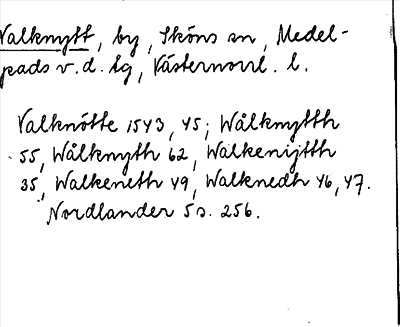 Valknytt, by, Sköns sn, Medel-
pads v. d. tg, Västernorrl. l.
Valknötte 1543, 45; Wålknytth
55, Wålknyth 62, Walkenijtth
35, Walkeneth 49, Walknedh 46, 47.
Nordlander 5 s. 256.